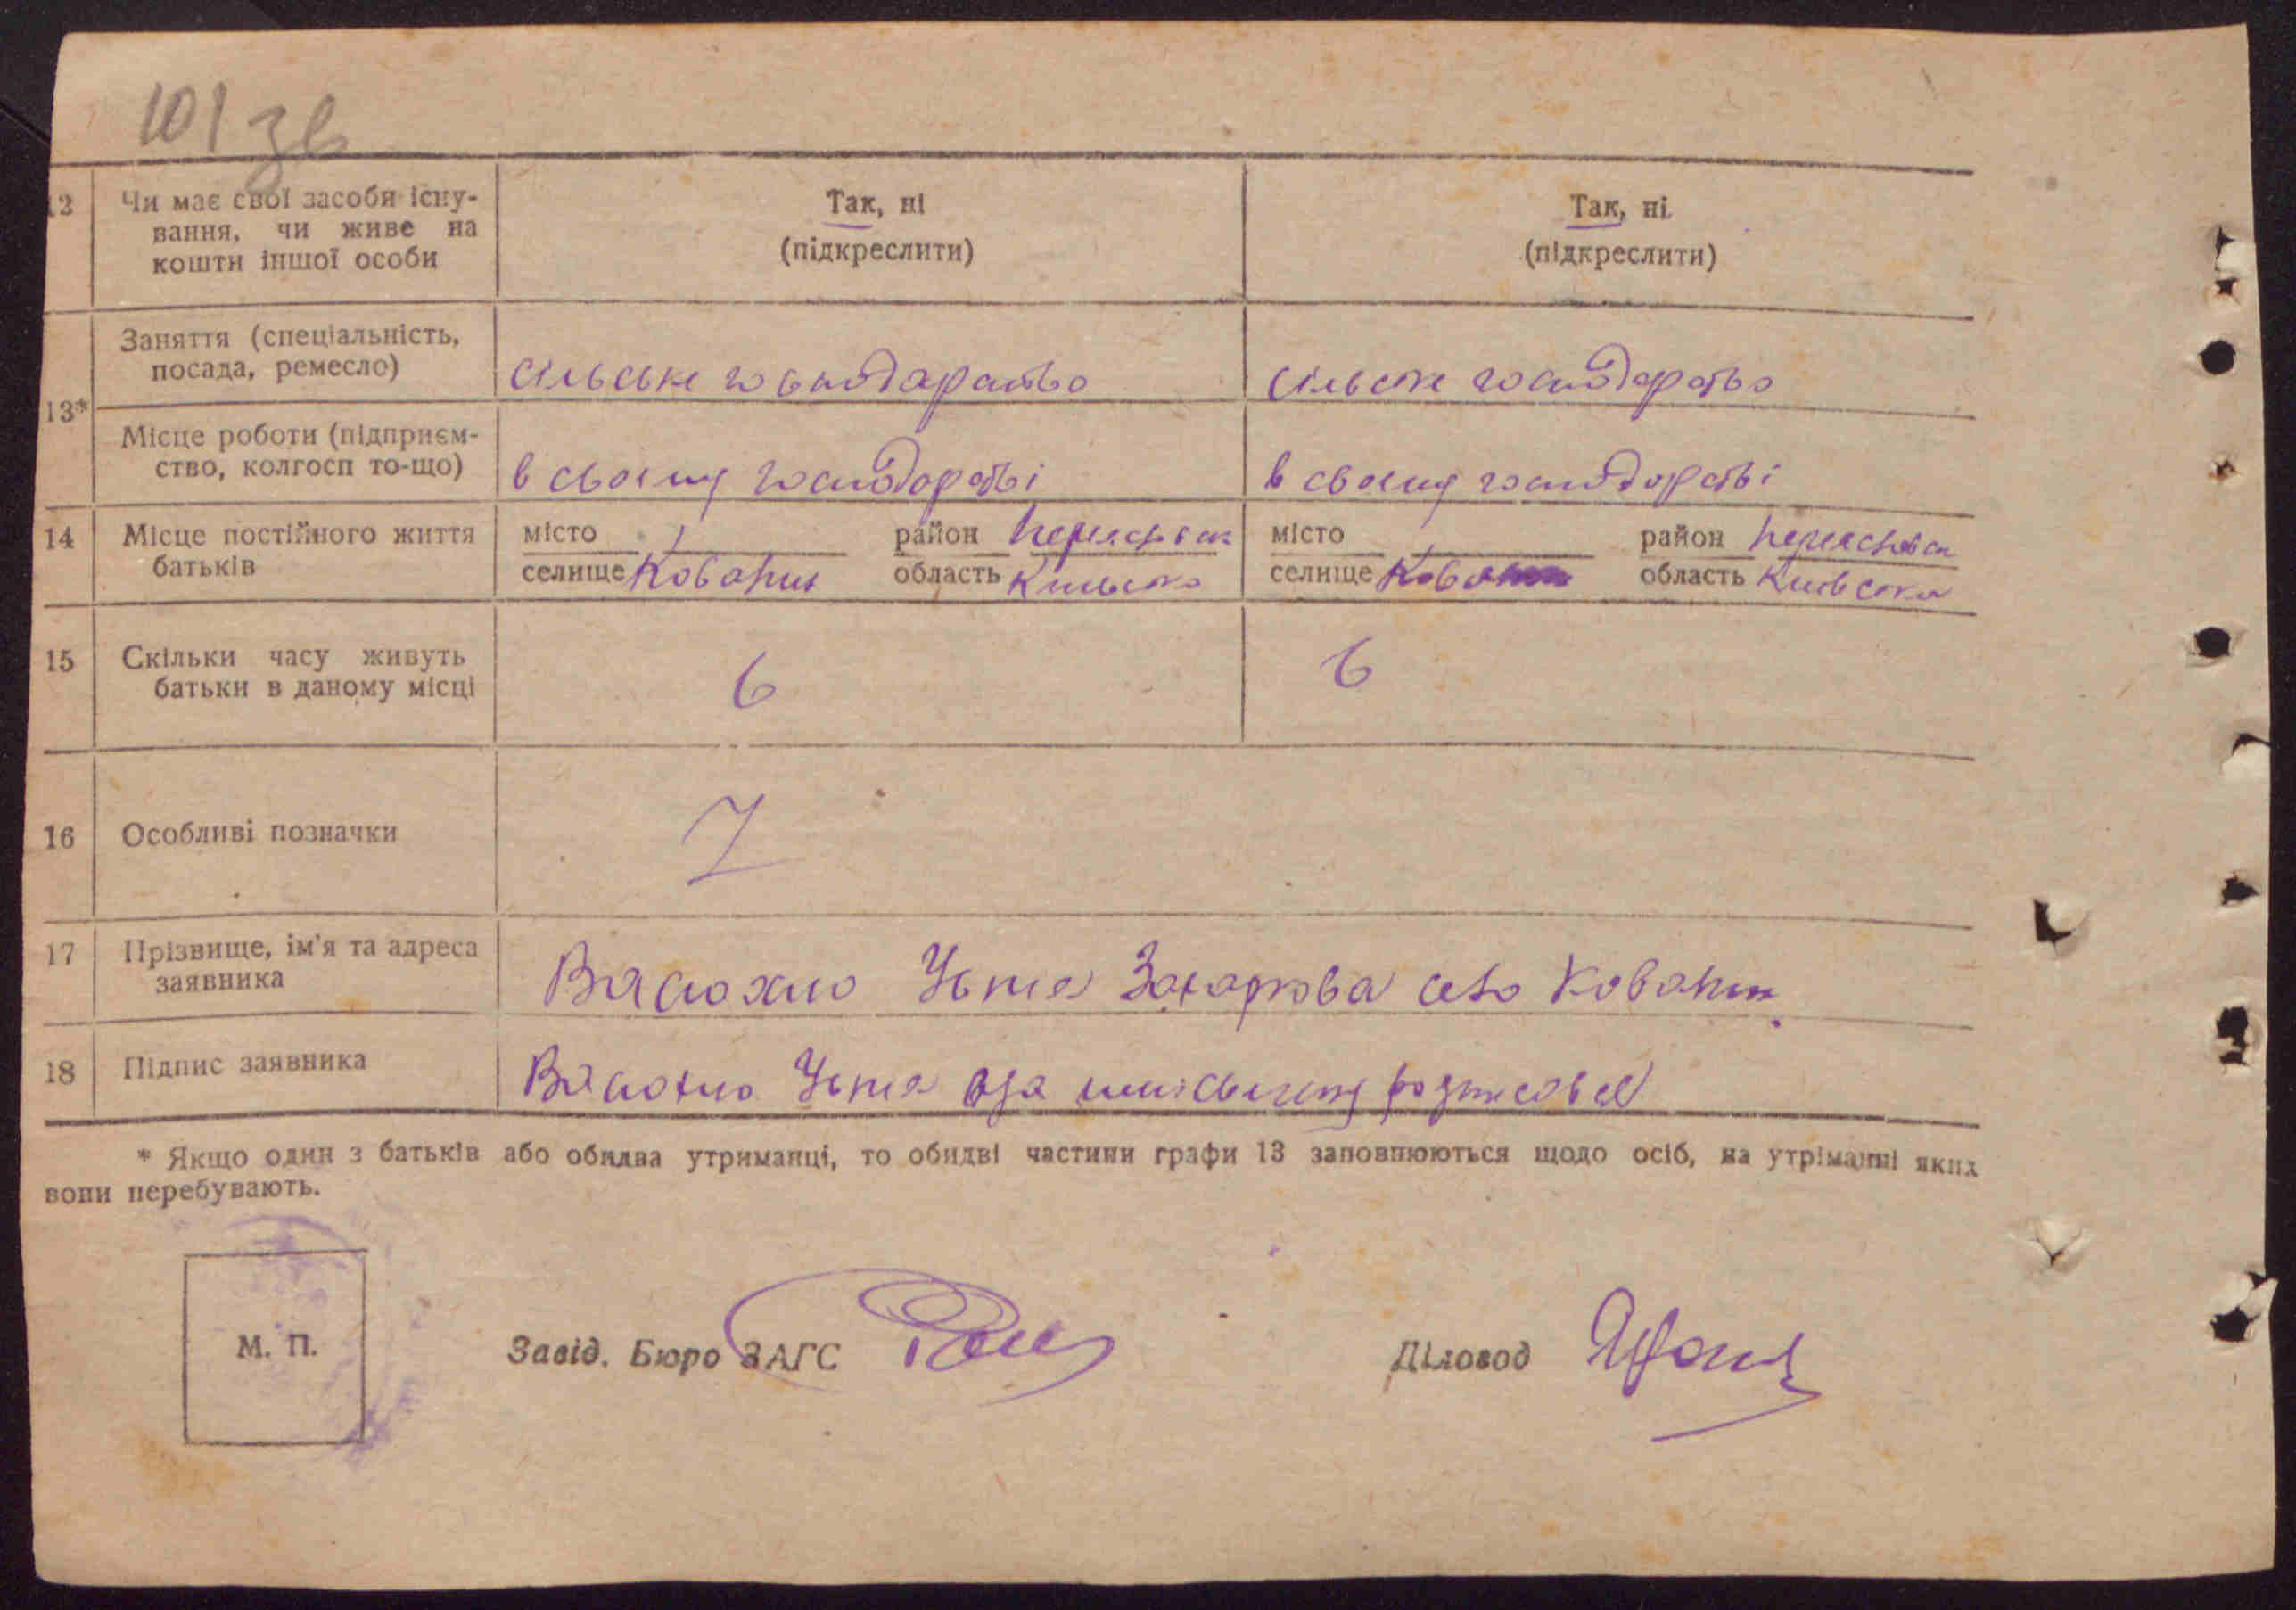 101 зв
12 Чи має свої засоби існу- Так, ні Так, ні
вання, чи живе на (підкреслити) (підкреслити)
кошти іншої особи
Заняття (спеціальність,
посада, ремесло) сільське господарство сільське господарство
13*
Місце роботи (підприєм-
ство, колгосп то-що) в своєму господарстві в своєму господарстві
14 Місце постійного життя місто район місто район
батьків селище Ковалин область Київська селище область Київська
15 Скільки часу живуть 6 6
батьки в даному місці
16 Особливі позначки
17 Прізвище, ім'я та адреса
заявника Захарова село Ковалин
18 Підпис заявника
* Якщо один з батьків або обидва утриманці, то обидві частини графи 13 заповнюються щодо осіб, на утріманні яких
вони перебувають.
М. П. Завід. Бюро ЗАГС Діловод